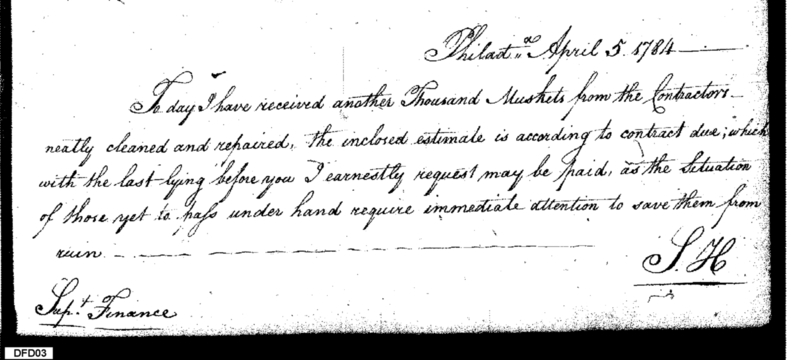 Philad.,,a April 5. 1784
To day I have received another Thousand Muskets from the Contractors
neatly cleaned and repaired, the inclosed estimate is according to contract due; which
with the last lying before you I earnestly request may be paid, as the Situation
of those yet to pass under hand require immediate attention to save them from
ruin
S. H
Supt. Finance
DFD03